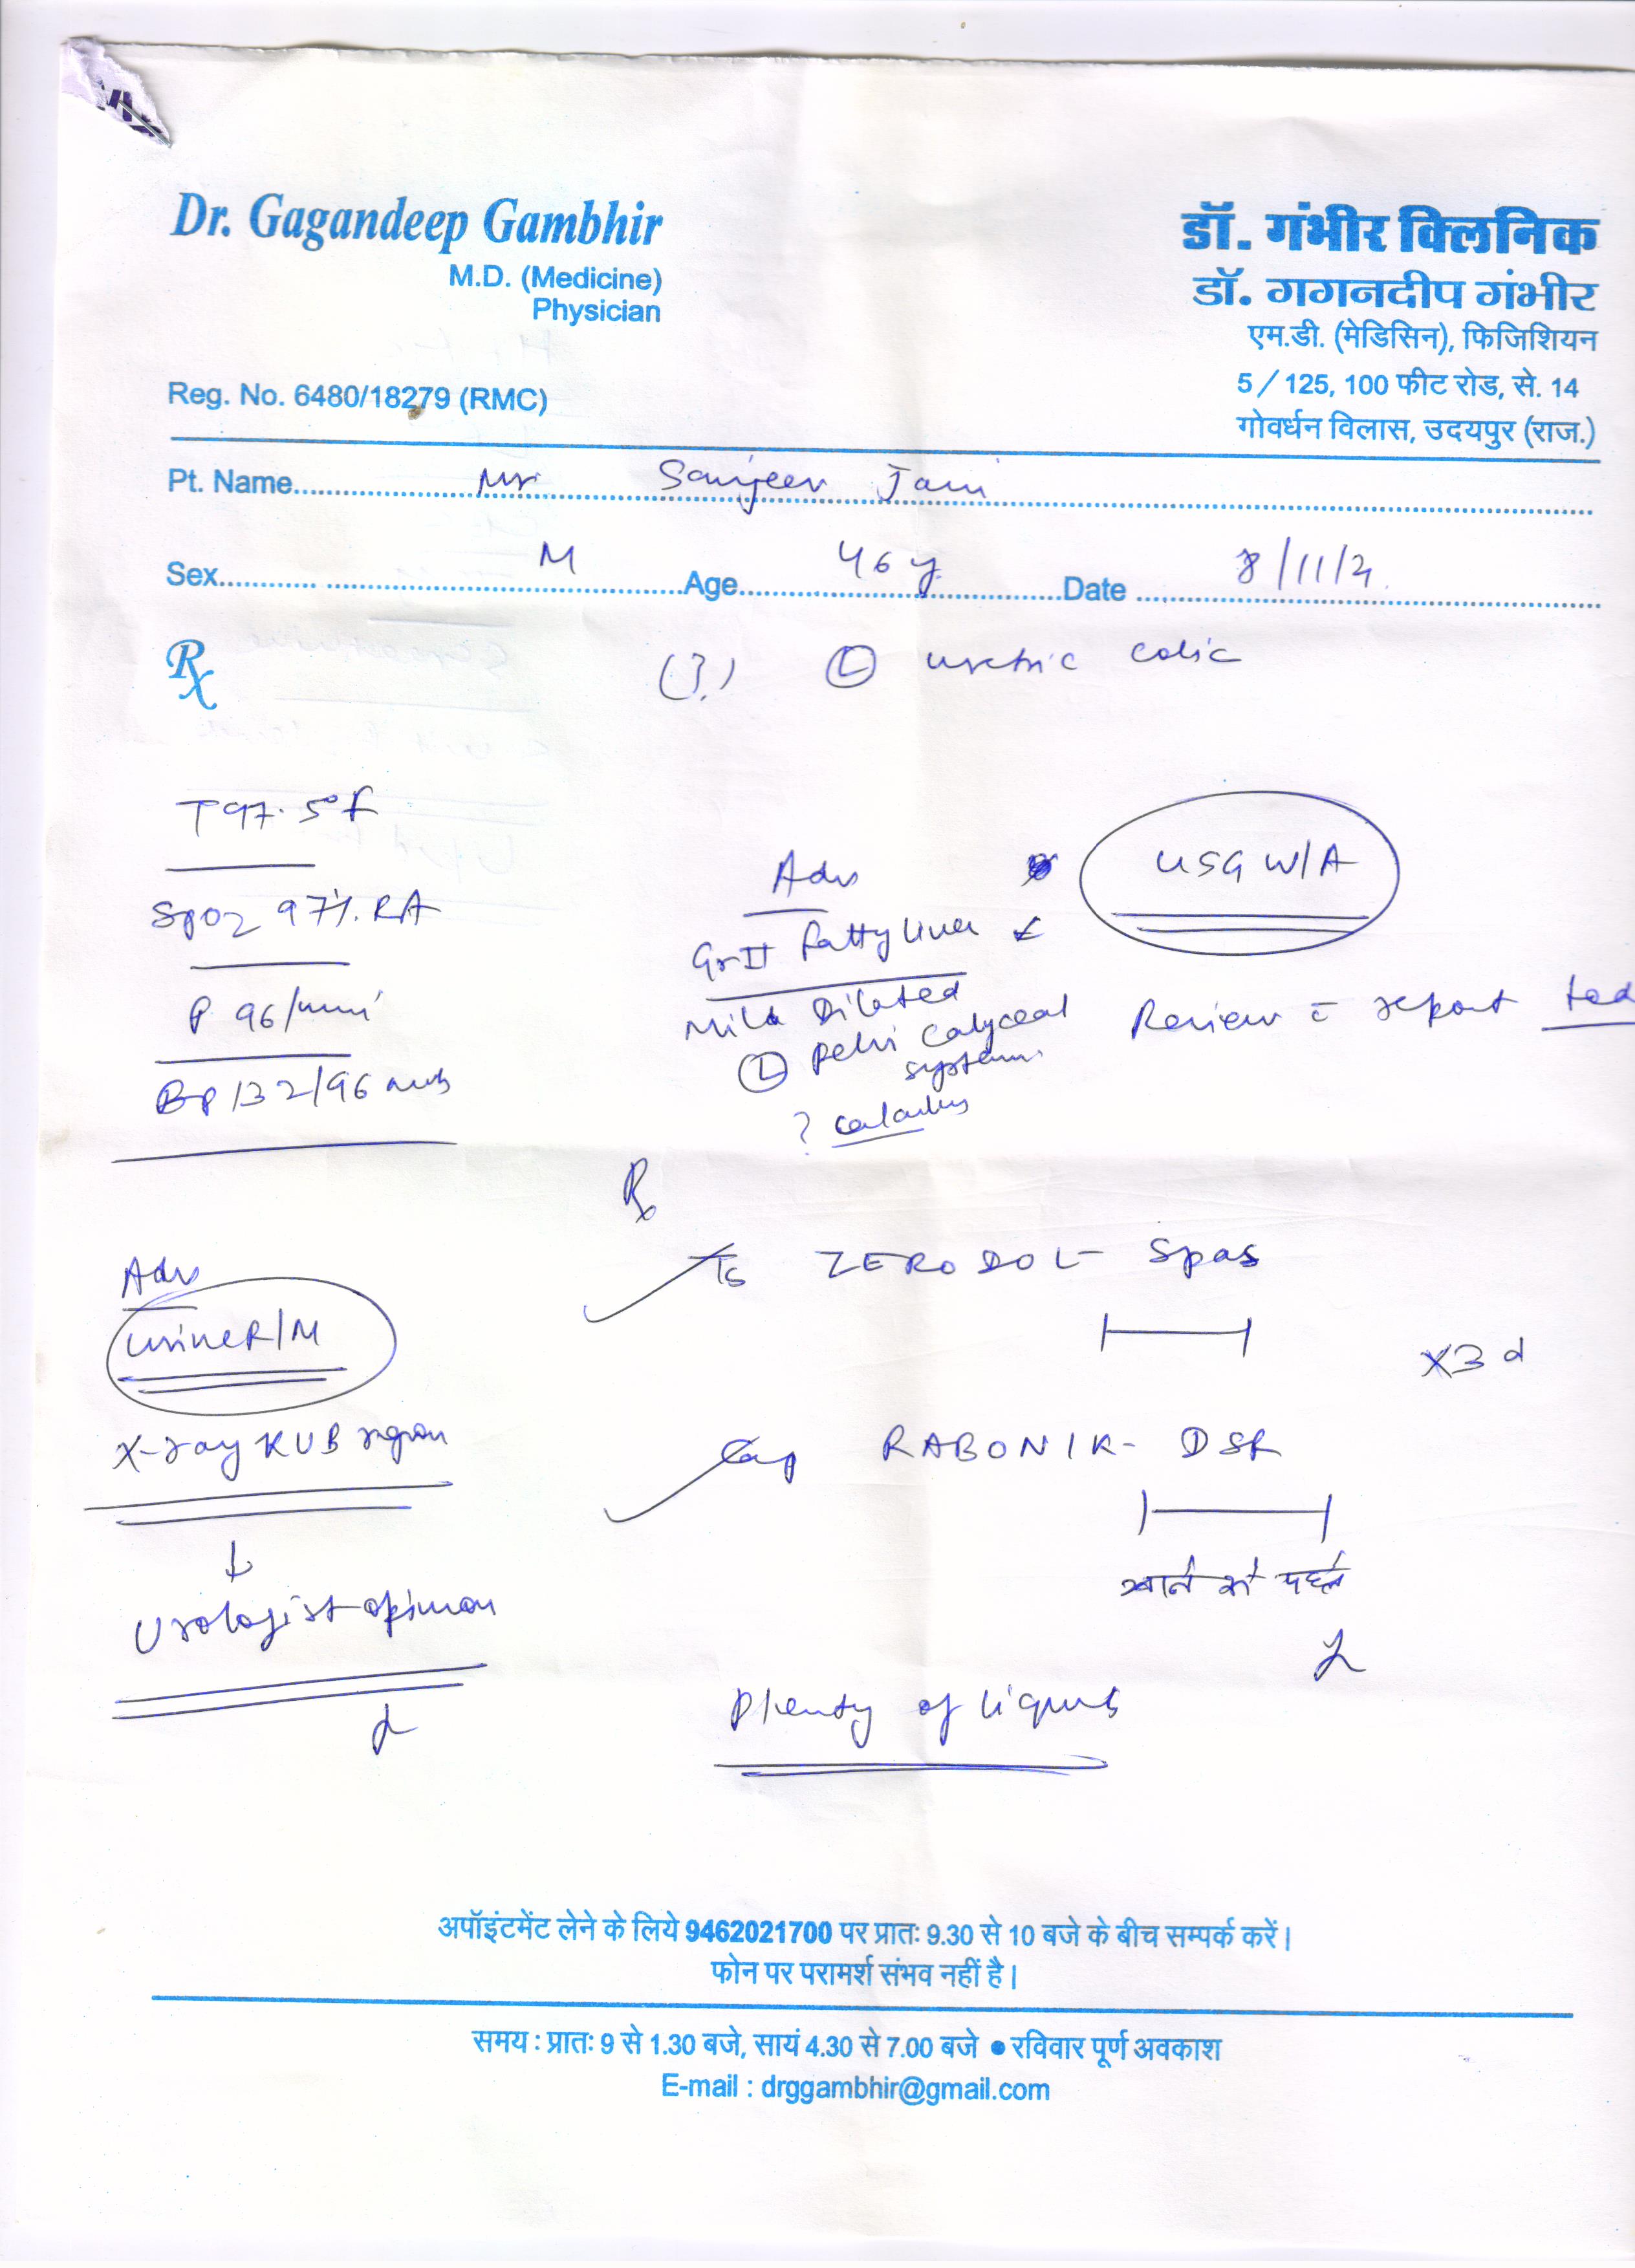 Dr. Gagandeep Gambhir
M.D. (Medicine)
Physician
Reg. No. 6480/18279 (RMC)
डॉ. गंभीर क्लिनिक
डॉ. गगनदीप गंभीर
एम.डी. (मेडिसिन), फिजिशियन
5/125, 100 फीट रोड, से. 14
गोवर्धन विलास, उदयपुर (राज.)
Pt. Name Mr Sanjeev Jain
Sex M Age 46 y Date 8/11/21
Rx (?) Ⓛ uretric colic
T 97.5°f
SpO2 97% RA
P 96/min
BP 132/96 mmhg
Adv USG W/A
Gr II fatty liver
Mild Dilated
Ⓛ pelvi calyceal
system
? calculus
Review c̄ report
Adv
urine R/M
X-ray KUB region
↓
Urologist opinion
Rx
Tb ZERODOL- Spas
X3 d
Cap RABONIK- DSR
खाने के पहले
Plenty of liquids
अपॉइंटमेंट लेने के लिये 9462021700 पर प्रातः 9.30 से 10 बजे के बीच सम्पर्क करें।
फोन पर परामर्श संभव नहीं है।
समय : प्रातः 9 से 1.30 बजे, सायं 4.30 से 7.00 बजे ● रविवार पूर्ण अवकाश
E-mail : drggambhir@gmail.com